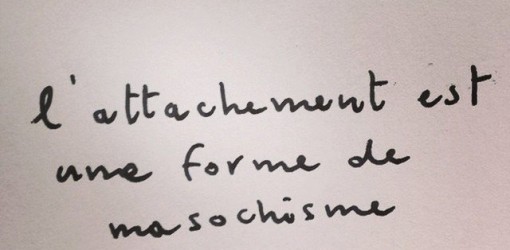 l'attachement est
une forme de
masochisme